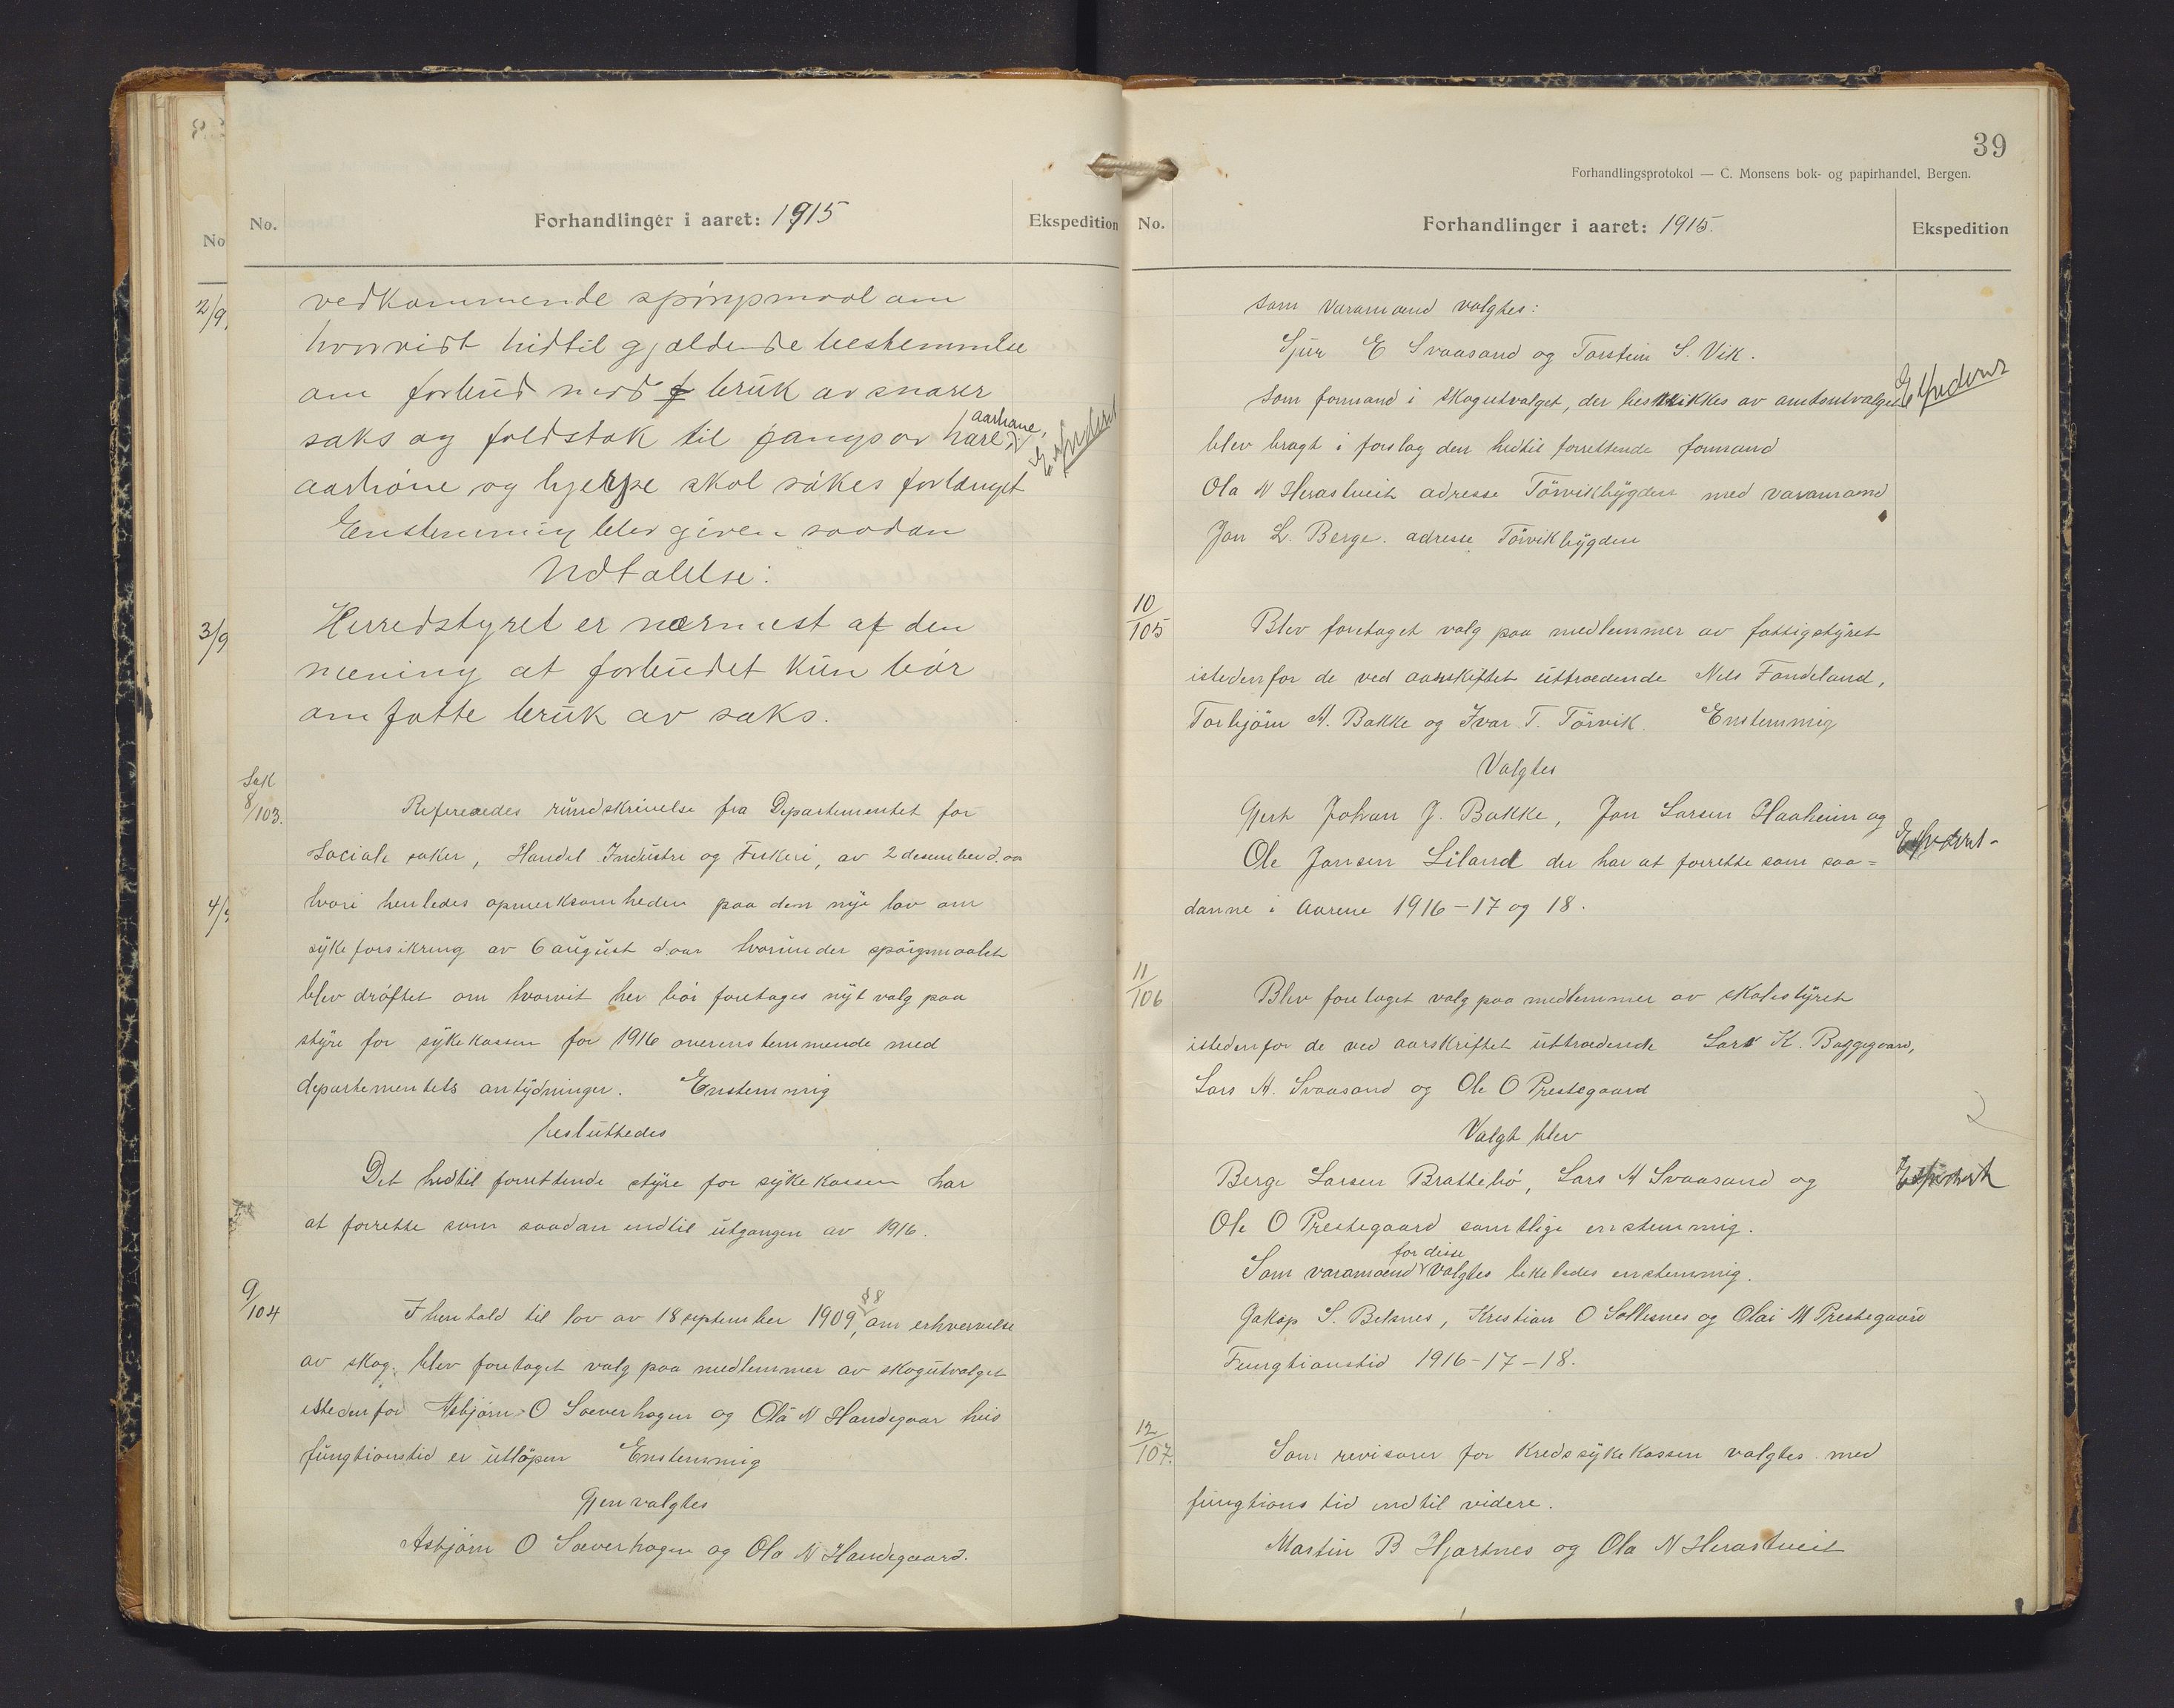 No.
2/9
3/9
4/9
No.
Forhandlinger i aaret: 1915
Ekspedition
vedkommende spörgsmaal om
hvorvidt hidtil gjældende bestemmelse
om forbud mod bruk av snarer
saks og feldstok til fangs av hare
aarhane,
aarhöne og hjerpe skal sökes forlænget
Enstemmig blev given saadan
Udtalelse:
Herredstyret er nærmest af den
mening at forbudet kun bör
omfatte bruk av saks.
Sak
8/103.
Refereredes rundskrivelse fra Departementet for
Sociale saker, Handel Industri og Fiskeri, av 2 desember d. aa
hvori henledes opmerksomheden paa den nye lov om
sykeforsikring av 6 august d. aar hvorunder spörgsmaalet
blev dröftet om hvorvit her bör foretages nyt valg paa
styre for sykekassen for 1916 overenstemmende med
departementets antydninger. Enstemmig
besluttedes
Det hidtil forrettende styre for sykekassen har
at forrette som saadan indtil utgangen av 1916.
9/104
I henhold til lov av 18 september 1909, § 8 om erhvervelse
av skog. blev foretaget valg paa medlemmer av skogutvalget
istedenfor Asbjörn O Sæverhagen og Ola N Handegaar hvis
fungtionstid er utlöpen Enstemmig
Gjenvalgtes
Asbjörn O Sæverhagen og Ola N Handegaard.
Ekspederet
39
Forhandlingsprotokol — C. Monsens bok- og papirhandel, Bergen.
No.
Forhandlinger i aaret: 1915.
Ekspedition
Som varamænd valgtes:
Sjur E Svaasand og Torstein S. Vik.
Som formand i skogutvalget, der beskikkes av amtsutvalget
blev bragt i forslag den hidtil forrettende formand
Ola N Herastveit adresse Törvikbygden med varamand
Jon L. Berge. adresse Törvikbygden
10/105
Blev foretaget valg paa medlemmer av fattigstyret
istedenfor de ved aarskiftet uttrædende Nils Fondeland,
Torbjörn A. Bakke og Ivar T. Törvik. Enstemmig
Valgtes
Gjert Johan J. Bakke, Jon Larsen Haaheim og
Ole Jansen Liland der har at forrette som saa=
danne i Aarene 1916-17 og 18.
11/106
Blev foretaget valg paa medlemmer av skolestyret
istedenfor de ved aarskriftet uttrædende Lars K. Baggegaard,
Lars A. Svaasand og Ole O Prestegaard
Valgt blev
Berge Larsen Brattebö, Lars A Svaasand og
Ole O Prestegaard samtlige enstemmig.
for disse
Som varamænd valgtes likeledes enstemmig.
Jakop S. Belsnes, Kristian O Sollesnes og Olai M Prestegaard
Fungtionstid 1916-17-18.
12/107.
Som revisorer for Kredssykekassen valgtes med
fungtionstid indtil videre.
Martin B Hjartnes og Ola N Herastveit